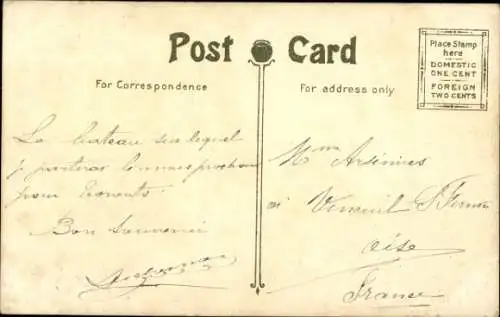 Post Card
For Correspondence
For address only
Place Stamp
here
DOMESTIC
ONE CENT
FOREIGN
TWO CENTS
Le bateau sur lequel
je partirai le mois prochain
pour Toronto
Bon Souvenir
Mme
Verneuil
Oise
France